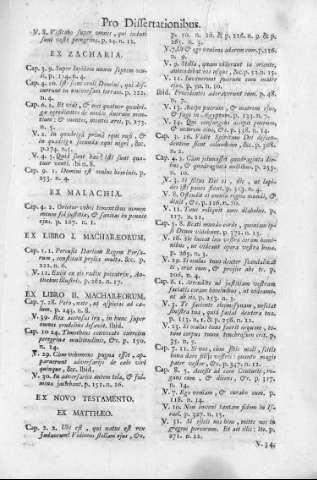 Pro Dissertationibus.
V. 8. Visitabo super omnes, qui induti
sunt veste peregrina, p. 29. n. 12.
EX ZACHARIA.
Cap. 3. 9. Super lapidem unum septem ocu-
li, p. 114. n. 4.
Cap. 4. 10. Isti sunt oculi Domini, qui dis-
currunt in universam terram. p. 223.
n. 4.
Cap. 6. 1. Et vidi, & ecce quatuor quadri-
gæ egredientes de medio duorum mon-
tium; & montes, montes ærei. p. 279.
n. 5.
V. 2. in quadriga prima equi rufi, &
in quadriga secunda equi nigri, &c.
p. 274. n. 5.
V. 4. 5. Quid sunt hæc? isti sunt qua-
tuor venti. Ibi n. 8.
Cap. 9. 1. Domini est oculus hominis. p.
255. n. 4.
EX MALACHIA.
Cap. 4. 2. Orietur vobis timentibus nomen
meum sol justitiæ, & sanitas in pennis
ejus. p. 167. n. 1.
EX LIBRO I. MACHABÆORUM.
Cap. 1. 1. Percussit Darium Regem Persa-
rum, constituit prælia multa, &c. p.
222. n. 6.
V. 11. Exiit ex eis radix peccatrix, An-
tiochus Illustris. p. 262. n. 17.
EX LIBRO II. MACHABÆORUM.
Cap. 7. 28. Peto, nate, ut aspicias ad cæ-
lum, p. 249. n. 8.
V. 39. Rex accensus ira, in hunc super
omnes crudelius desæviit. Ibid.
Cap. 10. 24. Timotheus convocato exercitu
peregrinæ multitudinis, &c. p. 150.
n. 14.
V. 29. Cum vehemens pugna esset, ap-
paruerunt adversariis de cælo viri
quinque, &c. Ibid.
V. 30. In adversarios autem tela, & ful-
mina jaciebant. p. 151. n. 16.
EX NOVO TESTAMENTO.
EX MATTHÆO.
Cap. 2. 2. Ubi est, qui natus est rex
Judæorum? Vidimus stellam ejus, &c.
p. 10. n. 26. & p. 226. n. 9. & p.
261. n. 3.
V. 9. Stella, quam viderant in oriente,
antecedebat eos usque, &c. p. 12. n. 15.
V. 11. Intrantes domum invenerunt pue-
rum, p. 10. n. 10.
Ibid. Procidentes adoraverunt eum, p. 48.
n. 2.
V. 13. Accipe puerum, & matrem ejus,
& fuge in Ægyptum.
V. 14. Qui consurgens accepit puerum,
& matrem ejus, &c. p. 338. n. 14.
Cap. 3. 16. Vidit Spiritum Dei descen-
dentem sicut columbam, &c. p. 308.
Cap. 4. 2. Cum jejunasset quadraginta die-
bus, & quadraginta noctibus, p. 253.
V. 3. Si filius Dei es, dic, ut lapi-
des isti panes fiant. p. 313. n. 4.
V. 8. Ostendit ei omnia regna mundi, &
V. 11. Tunc reliquit eum diabolus. p.
117. n. 21.
Cap. 5. 8. Beati mundo corde, quoniam ip-
si Deum videbunt. p. 171. n. 25.
V. 16. Sic luceat lux vestra coram homi-
nibus, ut videant opera vestra bona.
p. 265. n. 3.
V. 29. Si oculus tuus dexter scandalizat
te, erue eum, & projice abs te. p.
206. n. 4.
Cap. 6. 1. Attendite ne justitiam vestram
faciatis coram hominibus, ut videamini
ab eis. p. 253. n. 3.
V. 3. Te faciente eleemosynam, nesciat
sinistra tua, quid faciat dextera tua.
V. 23. Si oculus tuus fuerit nequam, to-
tum corpus tuum tenebrosum erit. p.
35. n. 5.
Cap. 7. 11. Si vos, cum sitis mali, nostis
bona dare filiis vestris: quanto magis
pater vester, &c. p. 347. n. 12.
Cap. 8. 5. Accessit ad eum Centurio, ro-
gans eum, & dicens, &c. p. 317.
n. 14.
V. 7. Ego veniam, & curabo eum. p.
118. n. 14.
V. 10. Non inveni tantam fidem in Is-
rael. p. 327. n. 15.
V. 31. Si ejicis nos hinc, mitte nos in
gregem porcorum. Et ait illis: Ite. p.
271. n. 22.
V. 34.